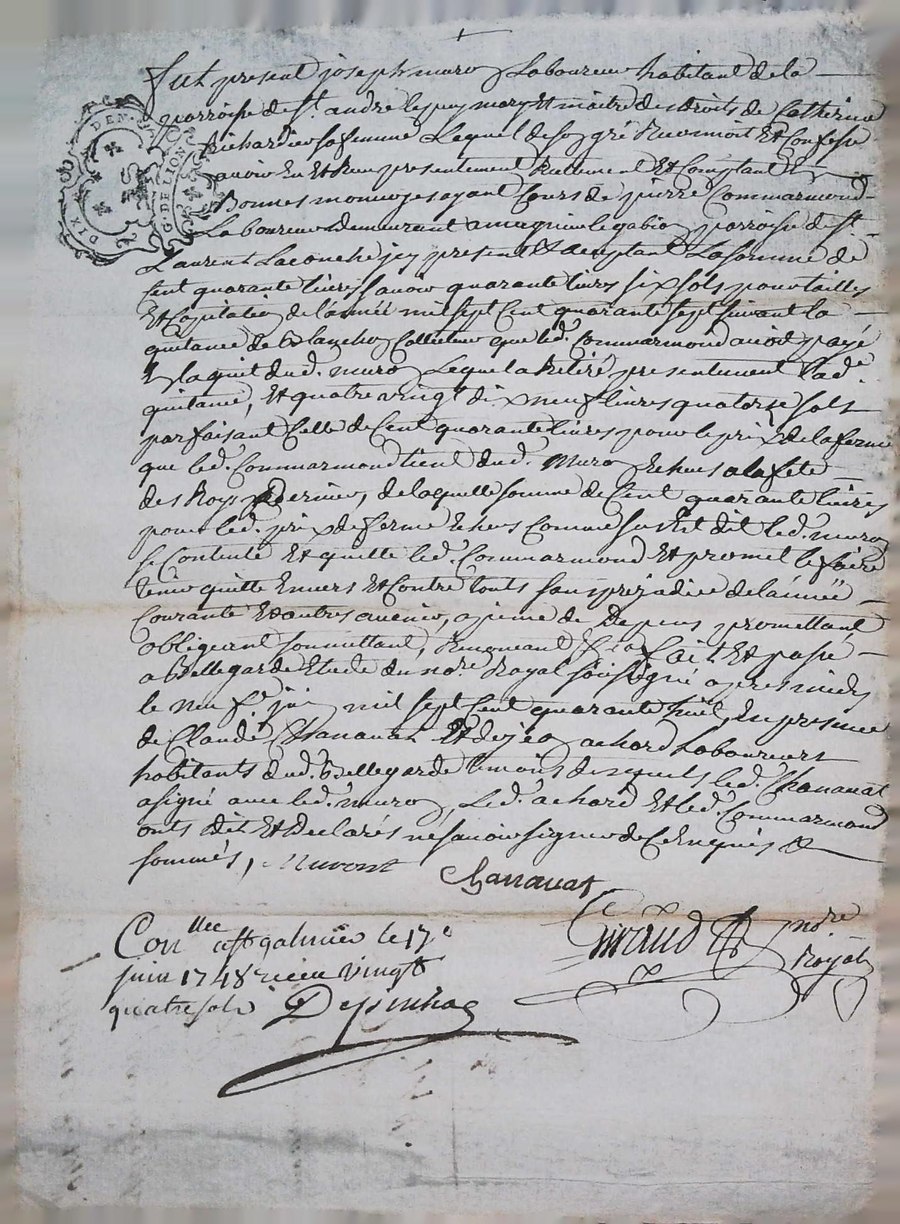 fut present joseph muron Laboureur habitant de la
parroisse de St. andré le puy mary Et maitre des droits de Catherine
Richardier sa femme Lequel de son gré Reconnoit Et Confesse
avoir Eu Et Reçu presentement Reellement Et Comptant En
Bonnes monnoyes ayant Cours de pierre Commarmond
Laboureur demeurant a parroisse de St.
Laurent Laconche jcy present Et aceptant La somme de
Cent quarante livres savoir quarante livres six sols pour tailles
Et Capitation de l'année mil sept Cent quarante sept suivant la
quitance de Blanchon Collecteur que led. Commarmond avoit payé
a l'aquit dud. muron Lequel a Retiré presentement lad.
quitance, Et quatre vingt dix neuf livres quatorse sols
parfaisant Celle de Cent quarante livres pour le prix de la ferme
que led. Commarmond tient dud. muron Echeus a la fete
des Roys dernier, de laquelle somme de Cent quarante livres
pour led. prix de ferme Echeus Comme sus Est dit led. muron
se Contente Et quitte led. Commarmond Et promet le faire
tenir quitte Envers Et Contre touts sans prejudice de l'année
Courante Et autres avenir, a peine de Depens promettant
obligeant soumettant, Renonceant fait Et passé
a Bellegarde Etude du nore. Royal soussigné apres midy
le neuf juin mil sept Cent quarante huit, En presence
de Claude Chanavat Et de jean achard Laboureurs
habitants dud. Bellegarde temoins desquels led. Chanavat
a signé avec led. muron, Led. achard Et led. Commarmond
onts dit Et Declarés ne savoir signer de Ce Enquis &
sommés, muront
Chanavat
Giraud nore. Royal
Conllée a St galmier le 17e
juin 1748 receu vingt
quatre sols Depinhac
DIX DEN.
G. DE LION